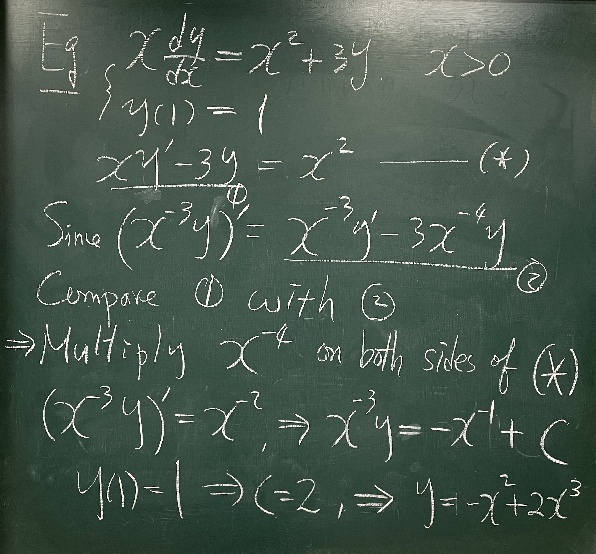 Eg x dy/dx = x² + 3y. x>0
{ y(1) = 1
xy' - 3y = x² —— (*)
①
Since (x⁻³y)' = x⁻³y' - 3x⁻⁴y
②
Compare ① with ②
⇒ Multiply x⁻⁴ on both sides of (*)
(x⁻³y)' = x⁻², ⇒ x⁻³y = -x⁻¹ + C
y(1) = 1 ⇒ C=2, ⇒ y = -x² + 2x³